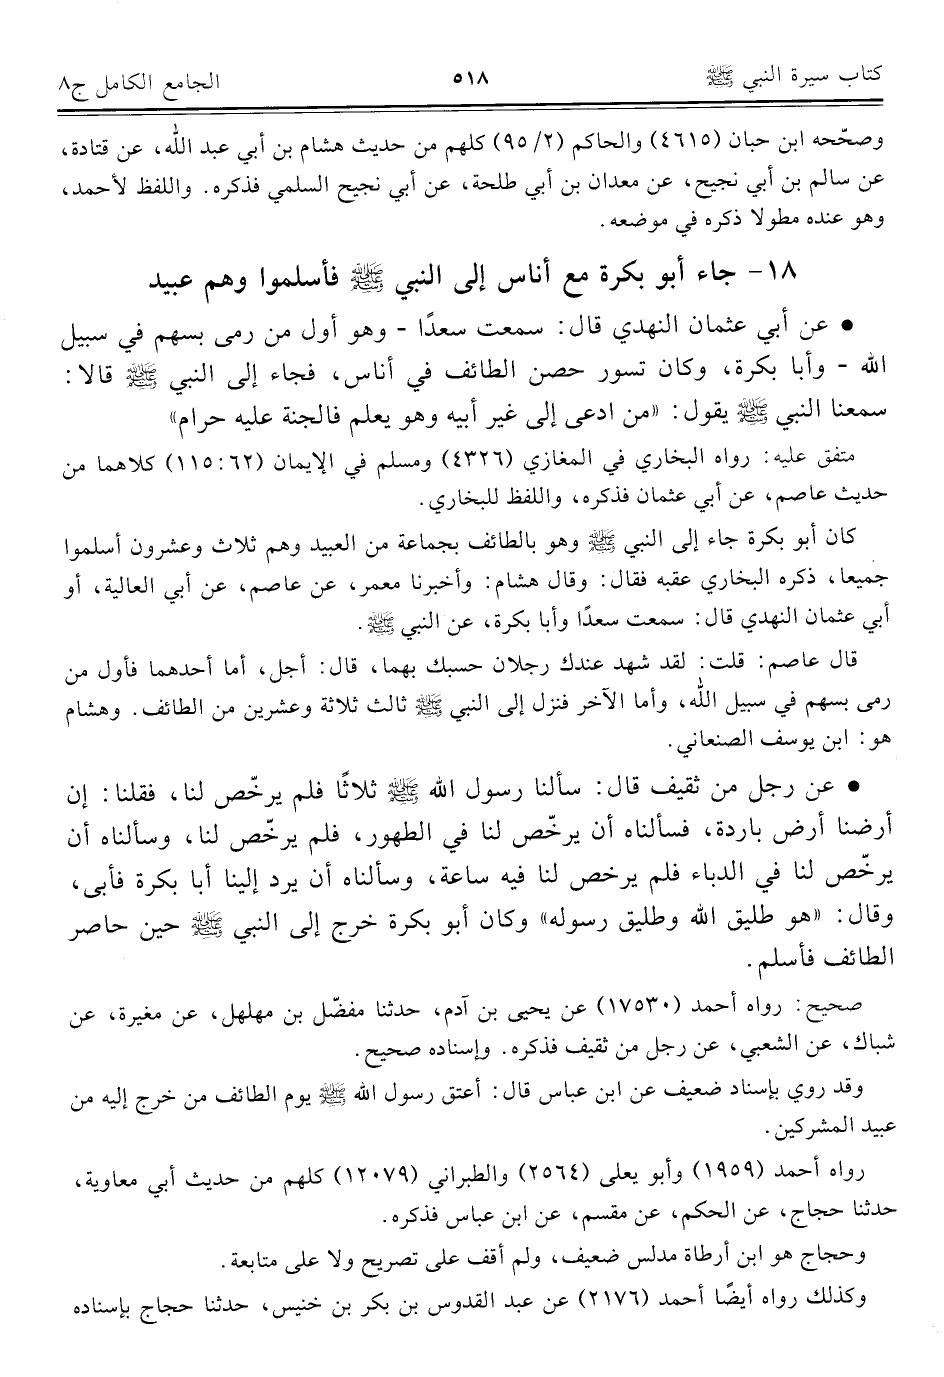 كتاب سيرة النبي ﷺ ٥١٨ الجامع الكامل ج٨
وصحّحه ابن حبان (٤٦١٥) والحاكم (٩٥/٢) كلهم من حديث هشام بن أبي عبد الله، عن قتادة،
عن سالم بن أبي نجيح، عن معدان بن أبي طلحة، عن أبي نجيح السلمي فذكره. واللفظ لأحمد،
وهو عنده مطولا ذكره في موضعه.
١٨- جاء أبو بكرة مع أناس إلى النبي ﷺ فأسلموا وهم عبيد
● عن أبي عثمان النهدي قال: سمعت سعدًا - وهو أول من رمى بسهم في سبيل
الله - وأبا بكرة، وكان تسور حصن الطائف في أناس، فجاء إلى النبي ﷺ قالا:
سمعنا النبي ﷺ يقول: «من ادعى إلى غير أبيه وهو يعلم فالجنة عليه حرام»
متفق عليه: رواه البخاري في المغازي (٤٣٢٦) ومسلم في الإيمان (١١٥:٦٢) كلاهما من
حديث عاصم، عن أبي عثمان فذكره، واللفظ للبخاري.
كان أبو بكرة جاء إلى النبي ﷺ وهو بالطائف بجماعة من العبيد وهم ثلاث وعشرون أسلموا
جميعا، ذكره البخاري عقبه فقال: وقال هشام: وأخبرنا معمر، عن عاصم، عن أبي العالية، أو
أبي عثمان النهدي قال: سمعت سعدًا وأبا بكرة، عن النبي ﷺ.
قال عاصم: قلت: لقد شهد عندك رجلان حسبك بهما، قال: أجل، أما أحدهما فأول من
رمى بسهم في سبيل الله، وأما الآخر فنزل إلى النبي ﷺ ثالث ثلاثة وعشرين من الطائف. وهشام
هو: ابن يوسف الصنعاني.
● عن رجل من ثقيف قال: سألنا رسول الله ﷺ ثلاثًا فلم يرخّص لنا، فقلنا: إن
أرضنا أرض باردة، فسألناه أن يرخّص لنا في الطهور، فلم يرخّص لنا، وسألناه أن
يرخّص لنا في الدباء فلم يرخص لنا فيه ساعة، وسألناه أن يرد إلينا أبا بكرة فأبى،
وقال: «هو طليق الله وطليق رسوله» وكان أبو بكرة خرج إلى النبي ﷺ حين حاصر
الطائف فأسلم.
صحيح: رواه أحمد (١٧٥٣٠) عن يحيى بن آدم، حدثنا مفضّل بن مهلهل، عن مغيرة، عن
شباك، عن الشعبي، عن رجل من ثقيف فذكره. وإسناده صحيح.
وقد روي بإسناد ضعيف عن ابن عباس قال: أعتق رسول الله ﷺ يوم الطائف من خرج إليه من
عبيد المشركين.
رواه أحمد (١٩٥٩) وأبو يعلى (٢٥٦٤) والطبراني (١٢٠٧٩) كلهم من حديث أبي معاوية،
حدثنا حجاج، عن الحكم، عن مقسم، عن ابن عباس فذكره.
وحجاج هو ابن أرطاة مدلس ضعيف، ولم أقف على تصريح ولا على متابعة.
وكذلك رواه أيضًا أحمد (٢١٧٦) عن عبد القدوس بن بكر بن خنيس، حدثنا حجاج بإسناده